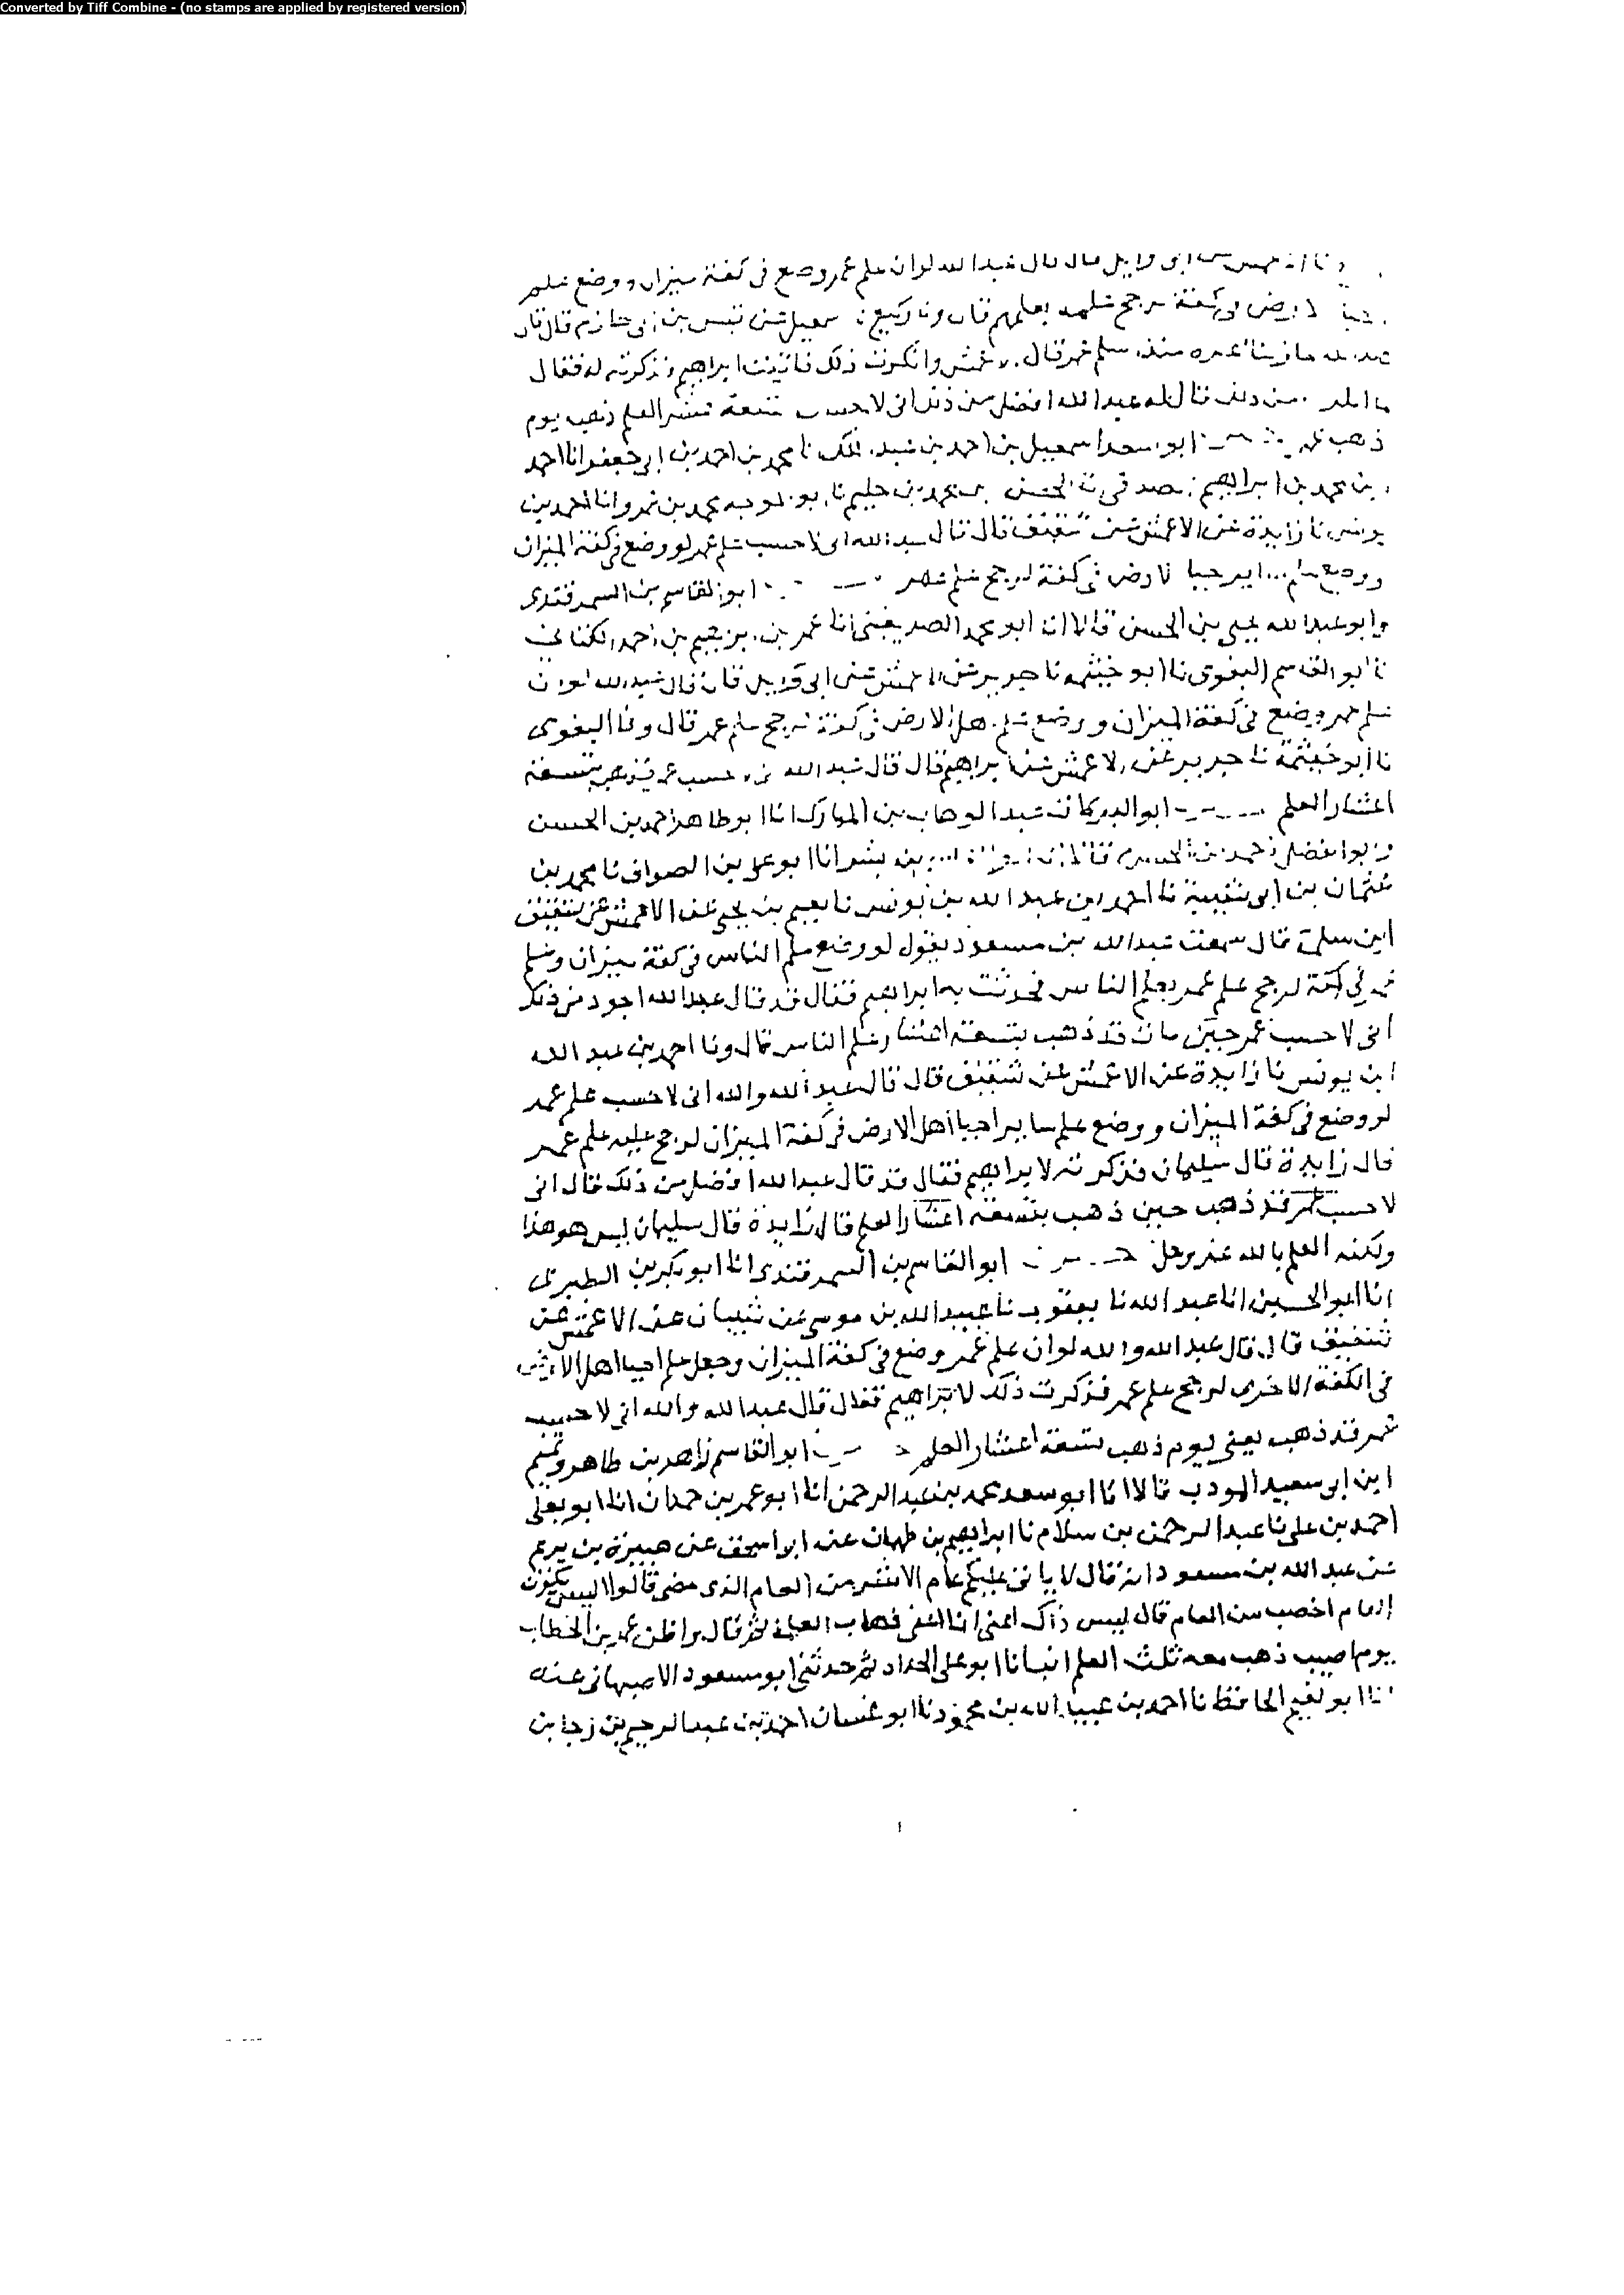 Converted by Tiff Combine - (no stamps are applied by registered version)
ابو وايل قال قال عبد الله لوان علم عمر وضع فى كفة ميزان ووضع علم
الارض فى كفة لرجح علمه بعلمهم قال ونا وكيع نا سمعيل عن قيس بن ابى حازم قال قال
عبد الله ما زلنا اعزه منذ اسلم عمر قال الاعمش وانكرت ذلك فاتيت ابراهيم فذكرته له فقال
من ذلك قال عبد الله افضل من ذلك انى لاحسب تسعة عشر العلم ذهب يوم
ذهب عمر ابو سعد اسمعيل بن احمد بن عبد الملك نا محمد بن احمد بن ابى جعفر انا احمد
بن محمد بن ابراهيم الصدفى نا الحسن بن محمد بن حليم نا ابو الموجه محمد بن عمرو انا احمد بن
يونس نا زايدة عن الاعمش عن شقيق قال قال عبد الله انى لاحسب علم عمر لو وضع فى كفة الميزان
ووضع علم الارض فى كفة لرجح علم عمر ابو القاسم بن السمرقندى
وابو عبد الله يحيى بن الحسن قالا انا ابو محمد الصريفينى انا عمر بن ابرهيم بن احمد الكتانى
نا ابو القاسم البغوى نا ابو خيثمه نا جرير عن الاعمش عن ابى وايل قال قال عبد الله لو ان
علم عمر وضع فى كفة الميزان ووضع علم اهل الارض فى كفة لرجح علم عمر قال ونا البغوى
نا ابو خيثمة نا جرير عن الاعمش عن ابراهيم قال قال عبد الله انى لاحسب عمر قد ذهب بتسعة
اعشار العلم ابو البركات عبد الوهاب بن المبارك انا ابو طاهر احمد بن الحسن
وابو الفضل احمد بن الحسن قالا انا بن بشر انا ابو على بن الصواف نا محمد بن
عثمان بن ابى شيبة نا احمد بن عبد الله بن يونس نا نعيم بن يحيى عن الاعمش عن شقيق
ابن سلمة قال سمعت عبد الله بن مسعود يقول لو وضع علم الناس فى كفة ميزان وعلم
عمر فى كفة لرجح علم عمر بعلم الناس فحدثت به ابراهيم فقال قد قال عبد الله اجود من ذلك
انى لاحسب عمر حين مات قد ذهب بتسعة اعشار علم الناس قال ونا احمد بن عبد الله
ابن يونس نا زايدة عن الاعمش عن شقيق قال قال عبد الله والله انى لاحسب علم عمر
لو وضع فى كفة الميزان ووضع علم ساير احيا اهل الارض فى كفة الميزان لرجح عليه علم عمر
قال زايدة قال سليمان فذكرته لابراهيم فقال قد قال عبد الله افضل من ذلك قال انى
لاحسب عمر قد ذهب حين ذهب بتسعة اعشار العلم قال زايدة قال سليمان ليس هو هذا
ولكنه العلم بالله عز وجل ابو القاسم بن السمرقندى انا ابو بكر بن الطبرى
انا ابو الحسين انا عبد الله نا يعقوب نا عبيد الله بن موسى عن شيبان عن الاعمش عن
شقيق قال قال عبد الله والله لو ان علم عمر وضع فى كفة الميزان وجعل علم احيا اهل الارض
فى الكفة الاخرى لرجح علم عمر فذكرت ذلك لابراهيم فقال قال عبد الله والله انى لاحسب
عمر قد ذهب يعنى يوم ذهب بتسعة اعشار العلم ابو القاسم زاهر بن طاهر وتميم
ابن ابى سعيد المودب قالا انا ابو سعد محمد بن عبد الرحمن انا ابو عمر بن حمدان انا ابو يعلى
احمد بن على نا عبد الرحمن بن سلام نا ابراهيم بن طهمان عن ابى اسحق عن هبيرة بن يريم
عن عبد الله بن مسعود انه قال لا ياتى عليكم عام الا اشر من العام الذى مضى قالوا اليس يكون
العام اخصب من العام قال ليس ذاك اعنى انما اعنى ذهاب العلما ثم قال واظن عمر بن الخطاب
يوم اصيب ذهب معه ثلث العلم انبانا ابو على الحداد ثم حدثنى ابو مسعود الاصبهانى عنه
انا ابو نعيم الحافظ نا احمد بن عبيد الله بن محمود نا ابو غسان احمد بن عبد الرحيم بن رجا بن